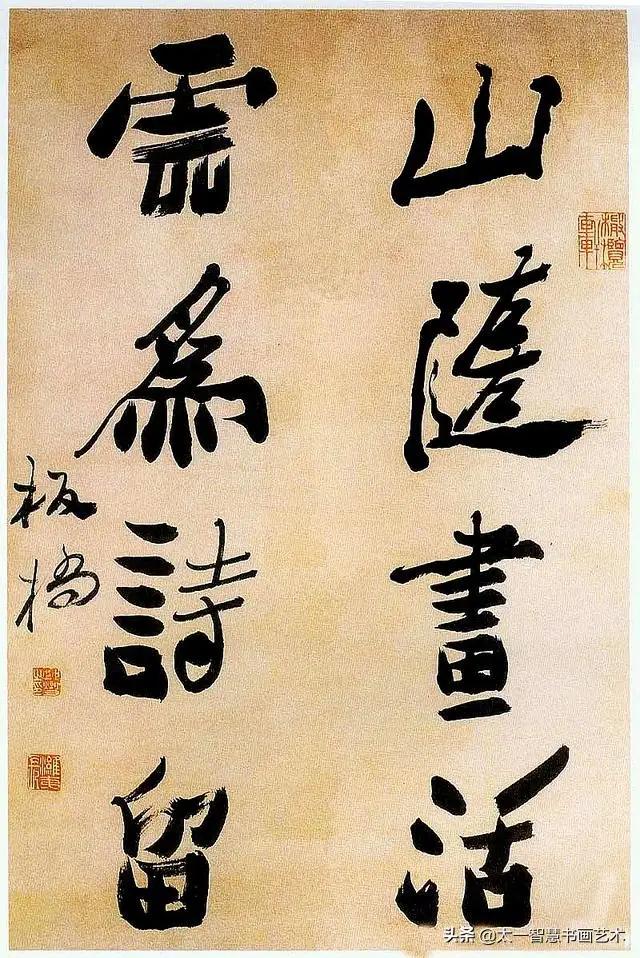 山隨畫活
雲爲詩留
板橋
头条 @太一智慧书画艺术